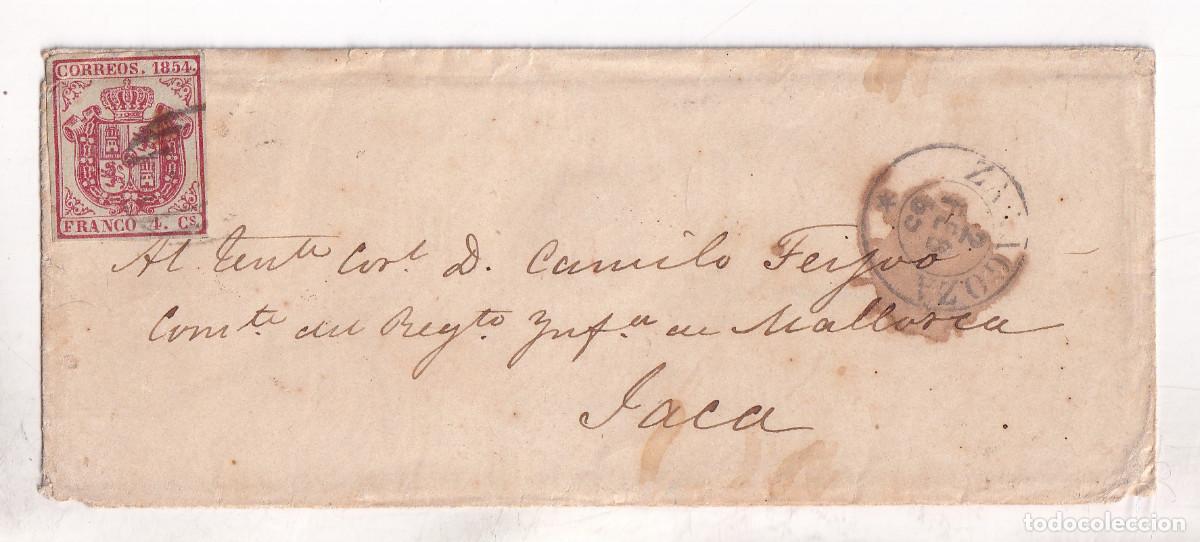 CORREOS. 1854.
FRANCO 4. Cs.
ZARAGOZA
Al Tente Corl. D. Camilo Feijoo
Comte del Regto Ynfa de Mallorca
Jaca
todocoleccion